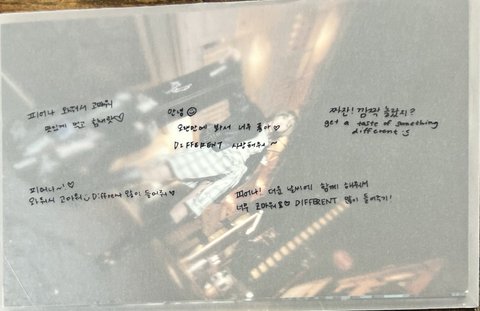 피어나 와줘서 고마워
맛있게 먹고 힘내랏♡
안녕 ☺
오랜만에 봐서 너무 좋아♡
DIFFERENT 사랑해줘 ~
짜잔! 깜짝 놀랐지?
get a taste of something
different :S
피어나~! ♡
와줘서 고마워 Different 많이 들어줘 ♡
피어나! 더운 날씨에 함께 해줘서
너무 고마워요♡ DIFFERENT 많이 들어주기!